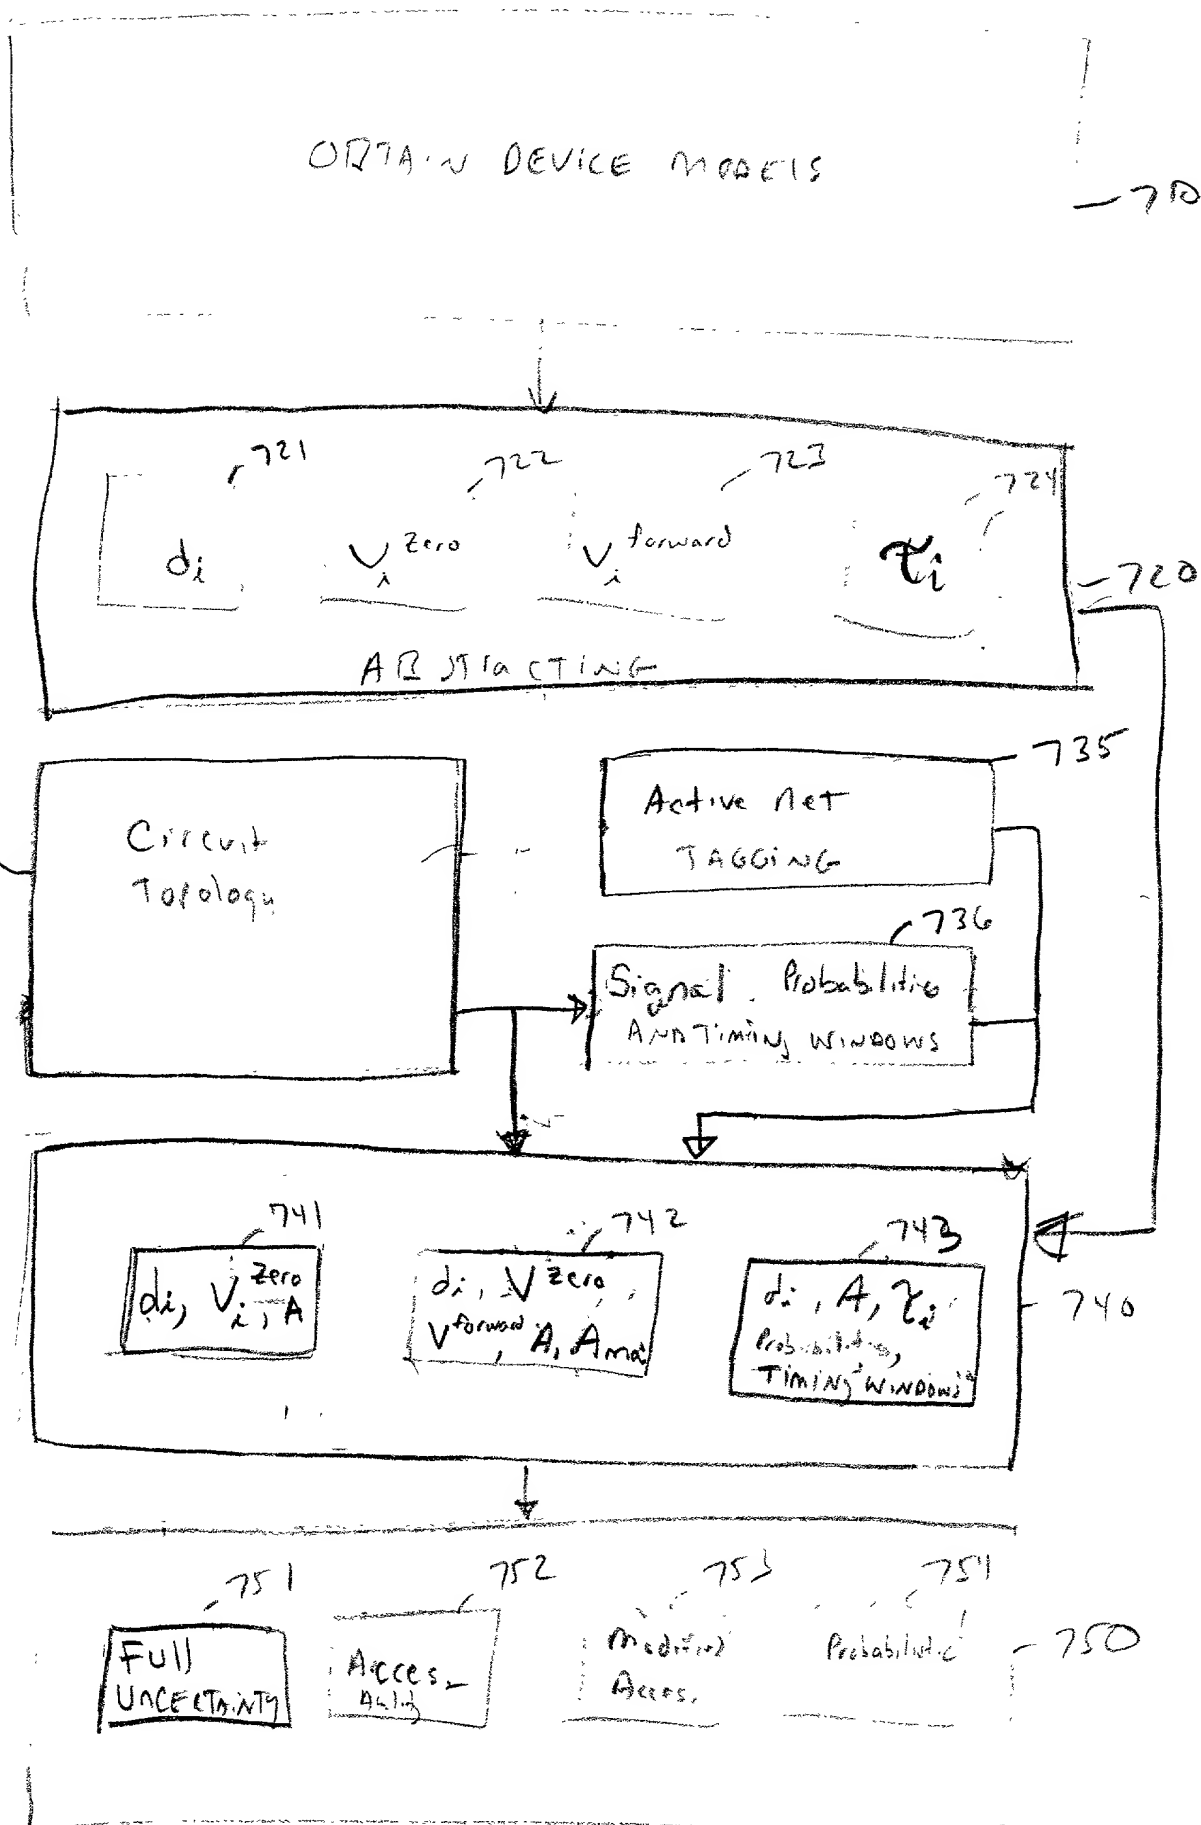 OBTAIN DEVICE MODELS
710
721
722
723
724
d_i
V_i^zero
V_i^forward
τ_i
720
ABSTRACTING
735
Circuit
Topology
Active Net
TAGGING
736
Signal Probabilities
AND TIMING WINDOWS
741
742
743
d_i, V_i^zero, A
d_i, V^zero,
V^forward, A, A
d_i, A, τ_i
Probabilities,
TIMING WINDOWS
740
751
752
753
754
Full
UNCERTAINTY
Access-
Modified
Access.
Probabilistic
750